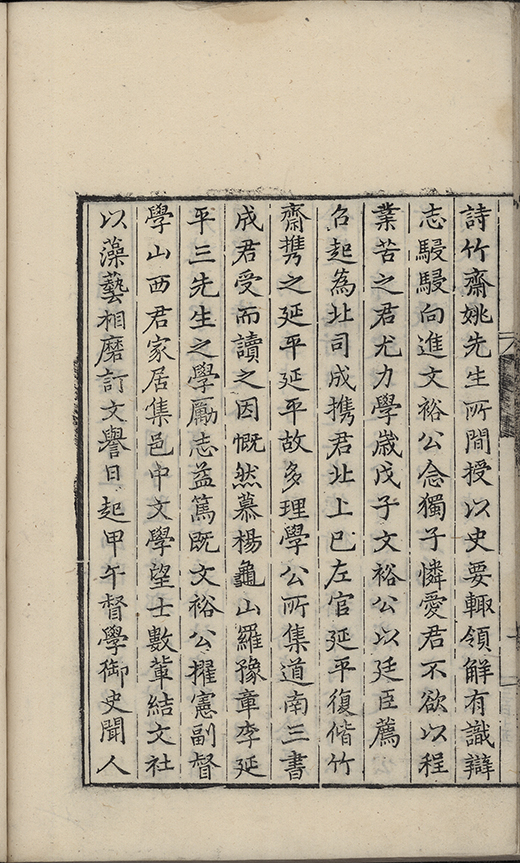 詩竹齋姚先生所間授以史要輙領解有識辯
志駸駸向進文裕公念獨子憐愛君不欲以程
業苦之君尤力學歲戊子文裕公以廷臣薦
召起為北司成携君北上已左官延平復偕竹
齋携之延平延平故多理學公所集道南三書
成君受而讀之因慨然慕楊龜山羅豫章李延
平三先生之學勵志益篤既文裕公擢憲副督
學山西君家居集邑中文學望士數軰結文社
以藻藝相磨訂文譽日起甲午督學御史聞人